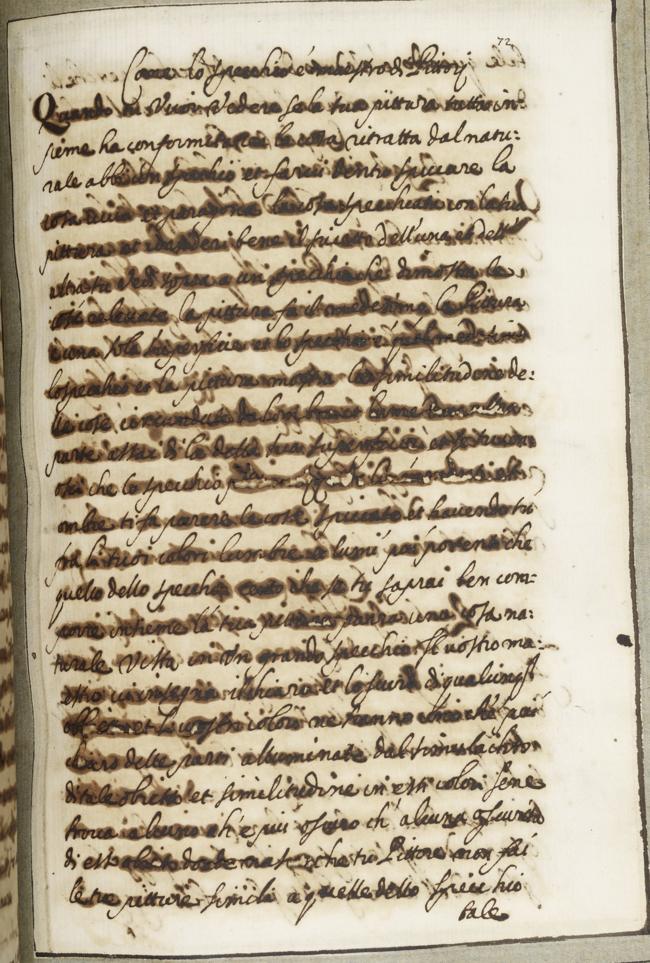 72
Come lo specchio é maestro de Pittorj
Quando tu Vuoi Vedere se la tua pittura tutta in:
sieme ha conformita con la cosa ritratta dal natu:
rale abbi un specchio et farai dentro spiccare la
cosa viva et paragona la cosa specchiata con la tua
pittura et considera bene il suietto dell'una et dell'
altra tu vedi sopra a un specchio che dimostra le
cose relevate la pittura fa il medesimo la Pittura
e una sola superficie et lo specchio é quel medesimo
lo specchio et la pittura mostra la similitudine de:
le cose circundate da l'ombra et lume
parte assai di la dalla sua superficie et se tu con:
osci che lo specchio
ombre ti fa parere le cose spiccate et havendo tu
fra li tuoi colori l'ombre e lumi piu potenti che
quello dello specchio certo che se tu saprai ben com:
porre insieme la tua pittura parra una cosa na:
turale Vista in un grande specchio. Il vostro ma:
estro vi insegna il chiaro et lo scuro di qualunq3
obb et li vostri colori ne hanno uno ché piú
chiaro delle parti alluminate
di tale obietti et similitudine in essi colori se ne
trova alcuno ch'é piu oscuro ch'alcuna oscurita
di essi che tu Pittore non fai
le tue pitture simili a quelle dello specchio
tale